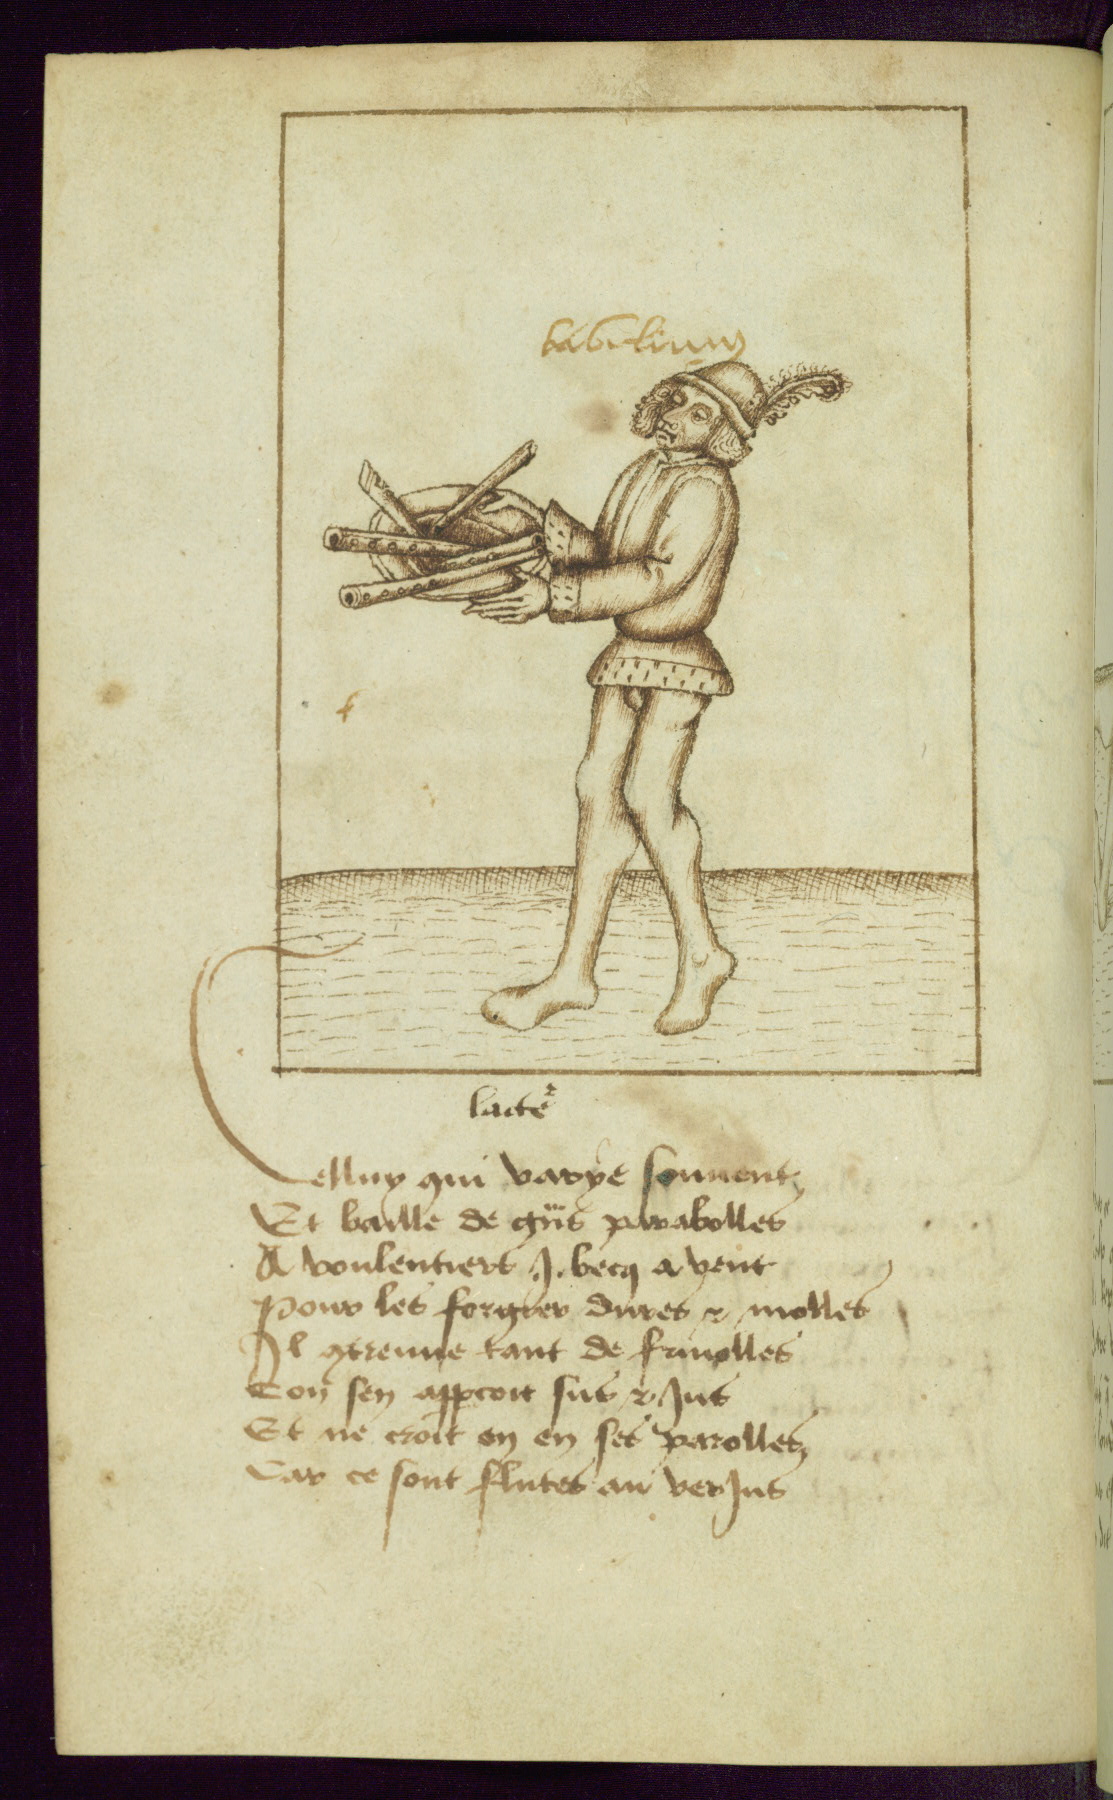 lacte᷑
elluy qui varye souuent
Et baille de gn̄s parabolles
A voulentiers .J. becq a vent
Pour les forgier dures & molles
Il gtreuue tant de friuolles
Con sen appcoit sus & Jus
Et ne croit on en ses parolles
Car ce sont flutes au verJus